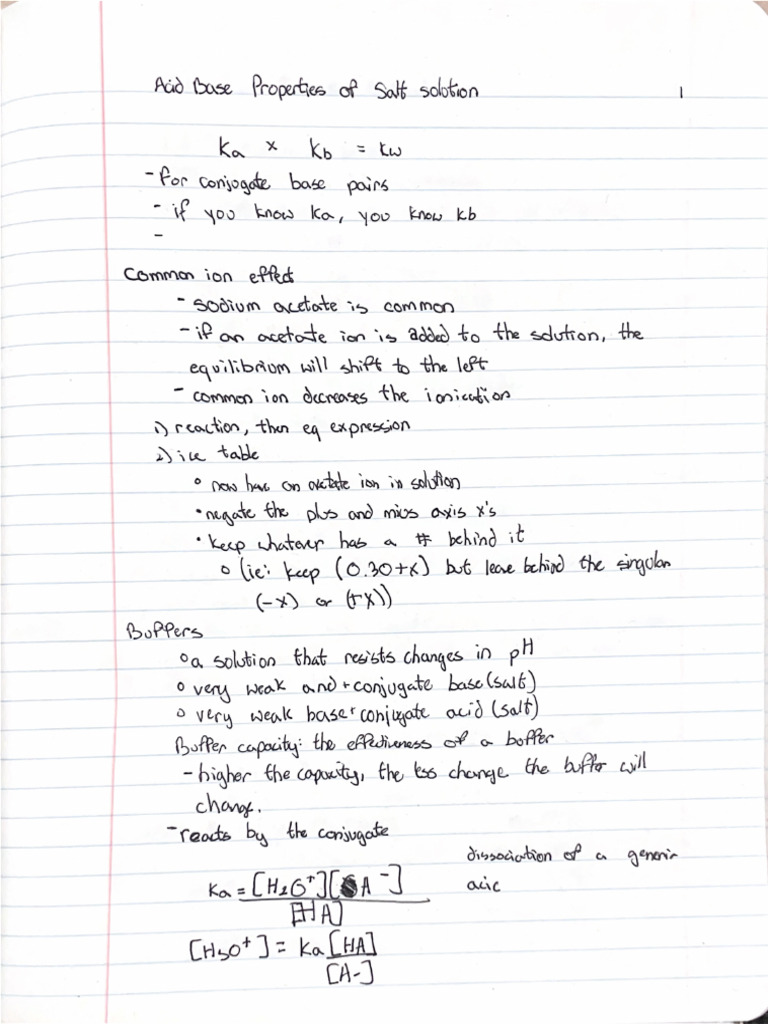 Acid Base Properties of Salt solution 1
Ka × Kb = Kw
- for conjugate base pairs
- if you know Ka, you know Kb
-
Common ion effect
- sodium acetate is common
- if an acetate ion is added to the solution, the
equilibrium will shift to the left
- common ion decreases the ionication
1) reaction, then eq expression
2) ice table
• now have an acetate ion in solution
• negate the plus and mius axis x's
• keep whatever has a # behind it
o (ie: keep (0.30+x) but leave behind the singular
(-x) or (+x))
Buffers
o a solution that resists changes in pH
o very weak and + conjugate base (salt)
o very weak base + conjugate acid (salt)
Buffer capacity: the effectiveness of a buffer
- higher the capacity, the less change the buffer will
change.
- reacts by the conjugate
dissociation of a generic
acic
Ka = [H₂O⁺][A⁻]
[HA]
[H₃O⁺] = Ka [HA]
[A-]